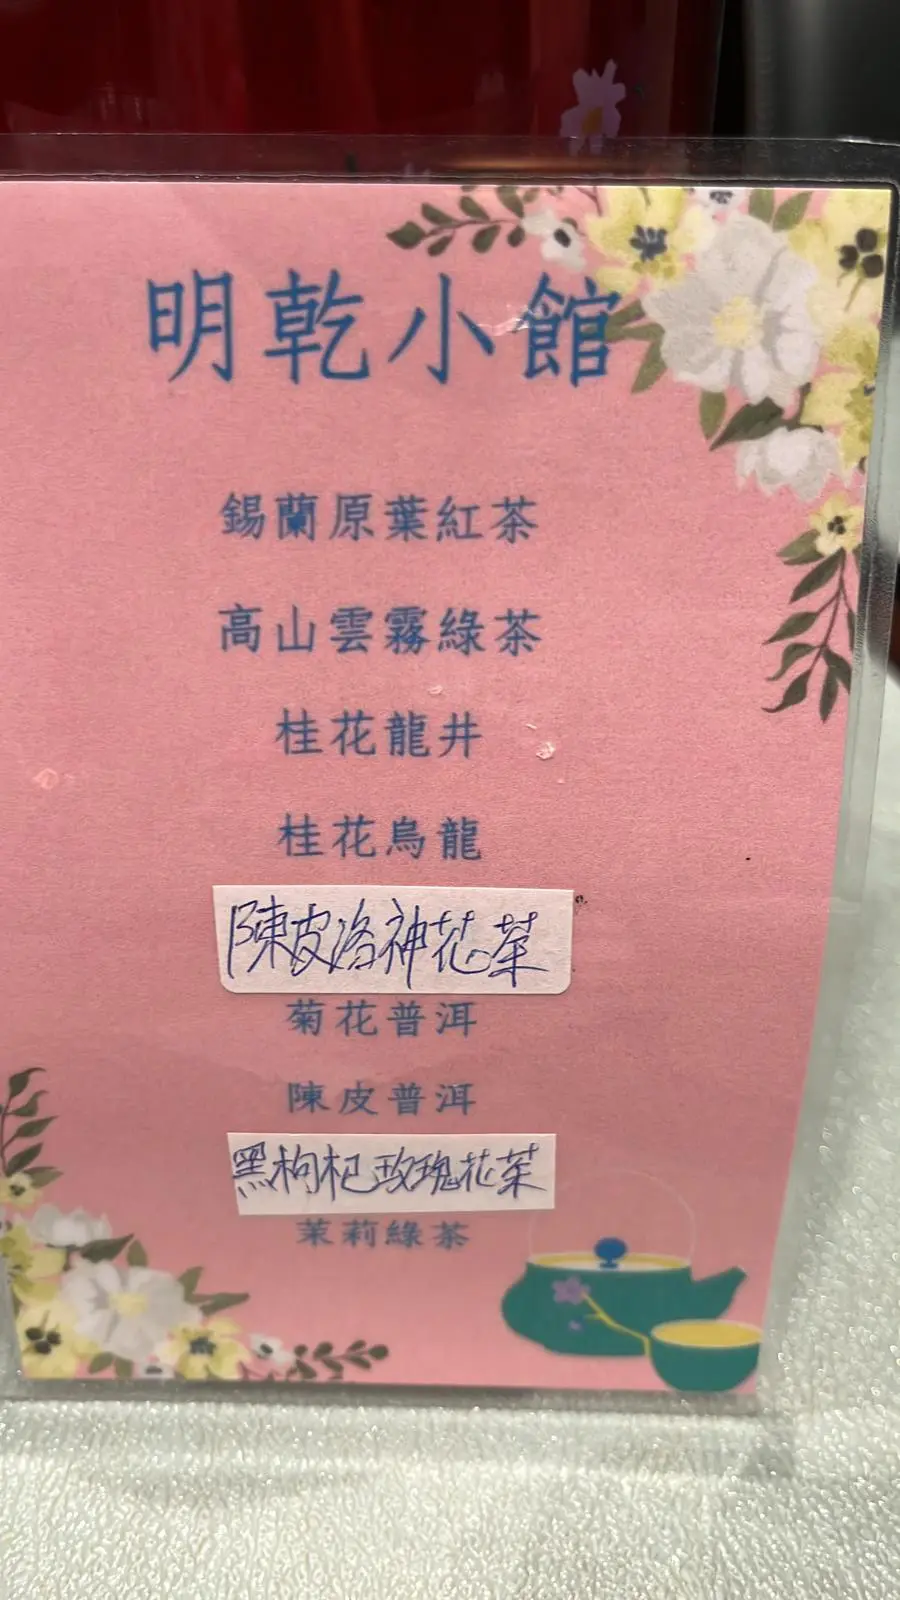 明乾小館
錫蘭原葉紅茶
高山雲霧綠茶
桂花龍井
桂花烏龍
陳皮洛神花茶
菊花普洱
陳皮普洱
黑枸杞玫瑰花茶
茉莉綠茶